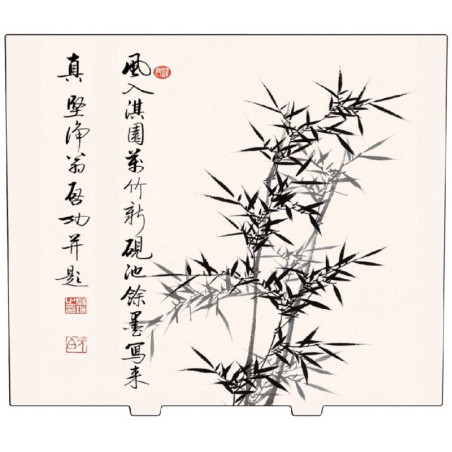 風入淇園萬竹新硯池餘墨寫来
真 堅净翁啓功并題